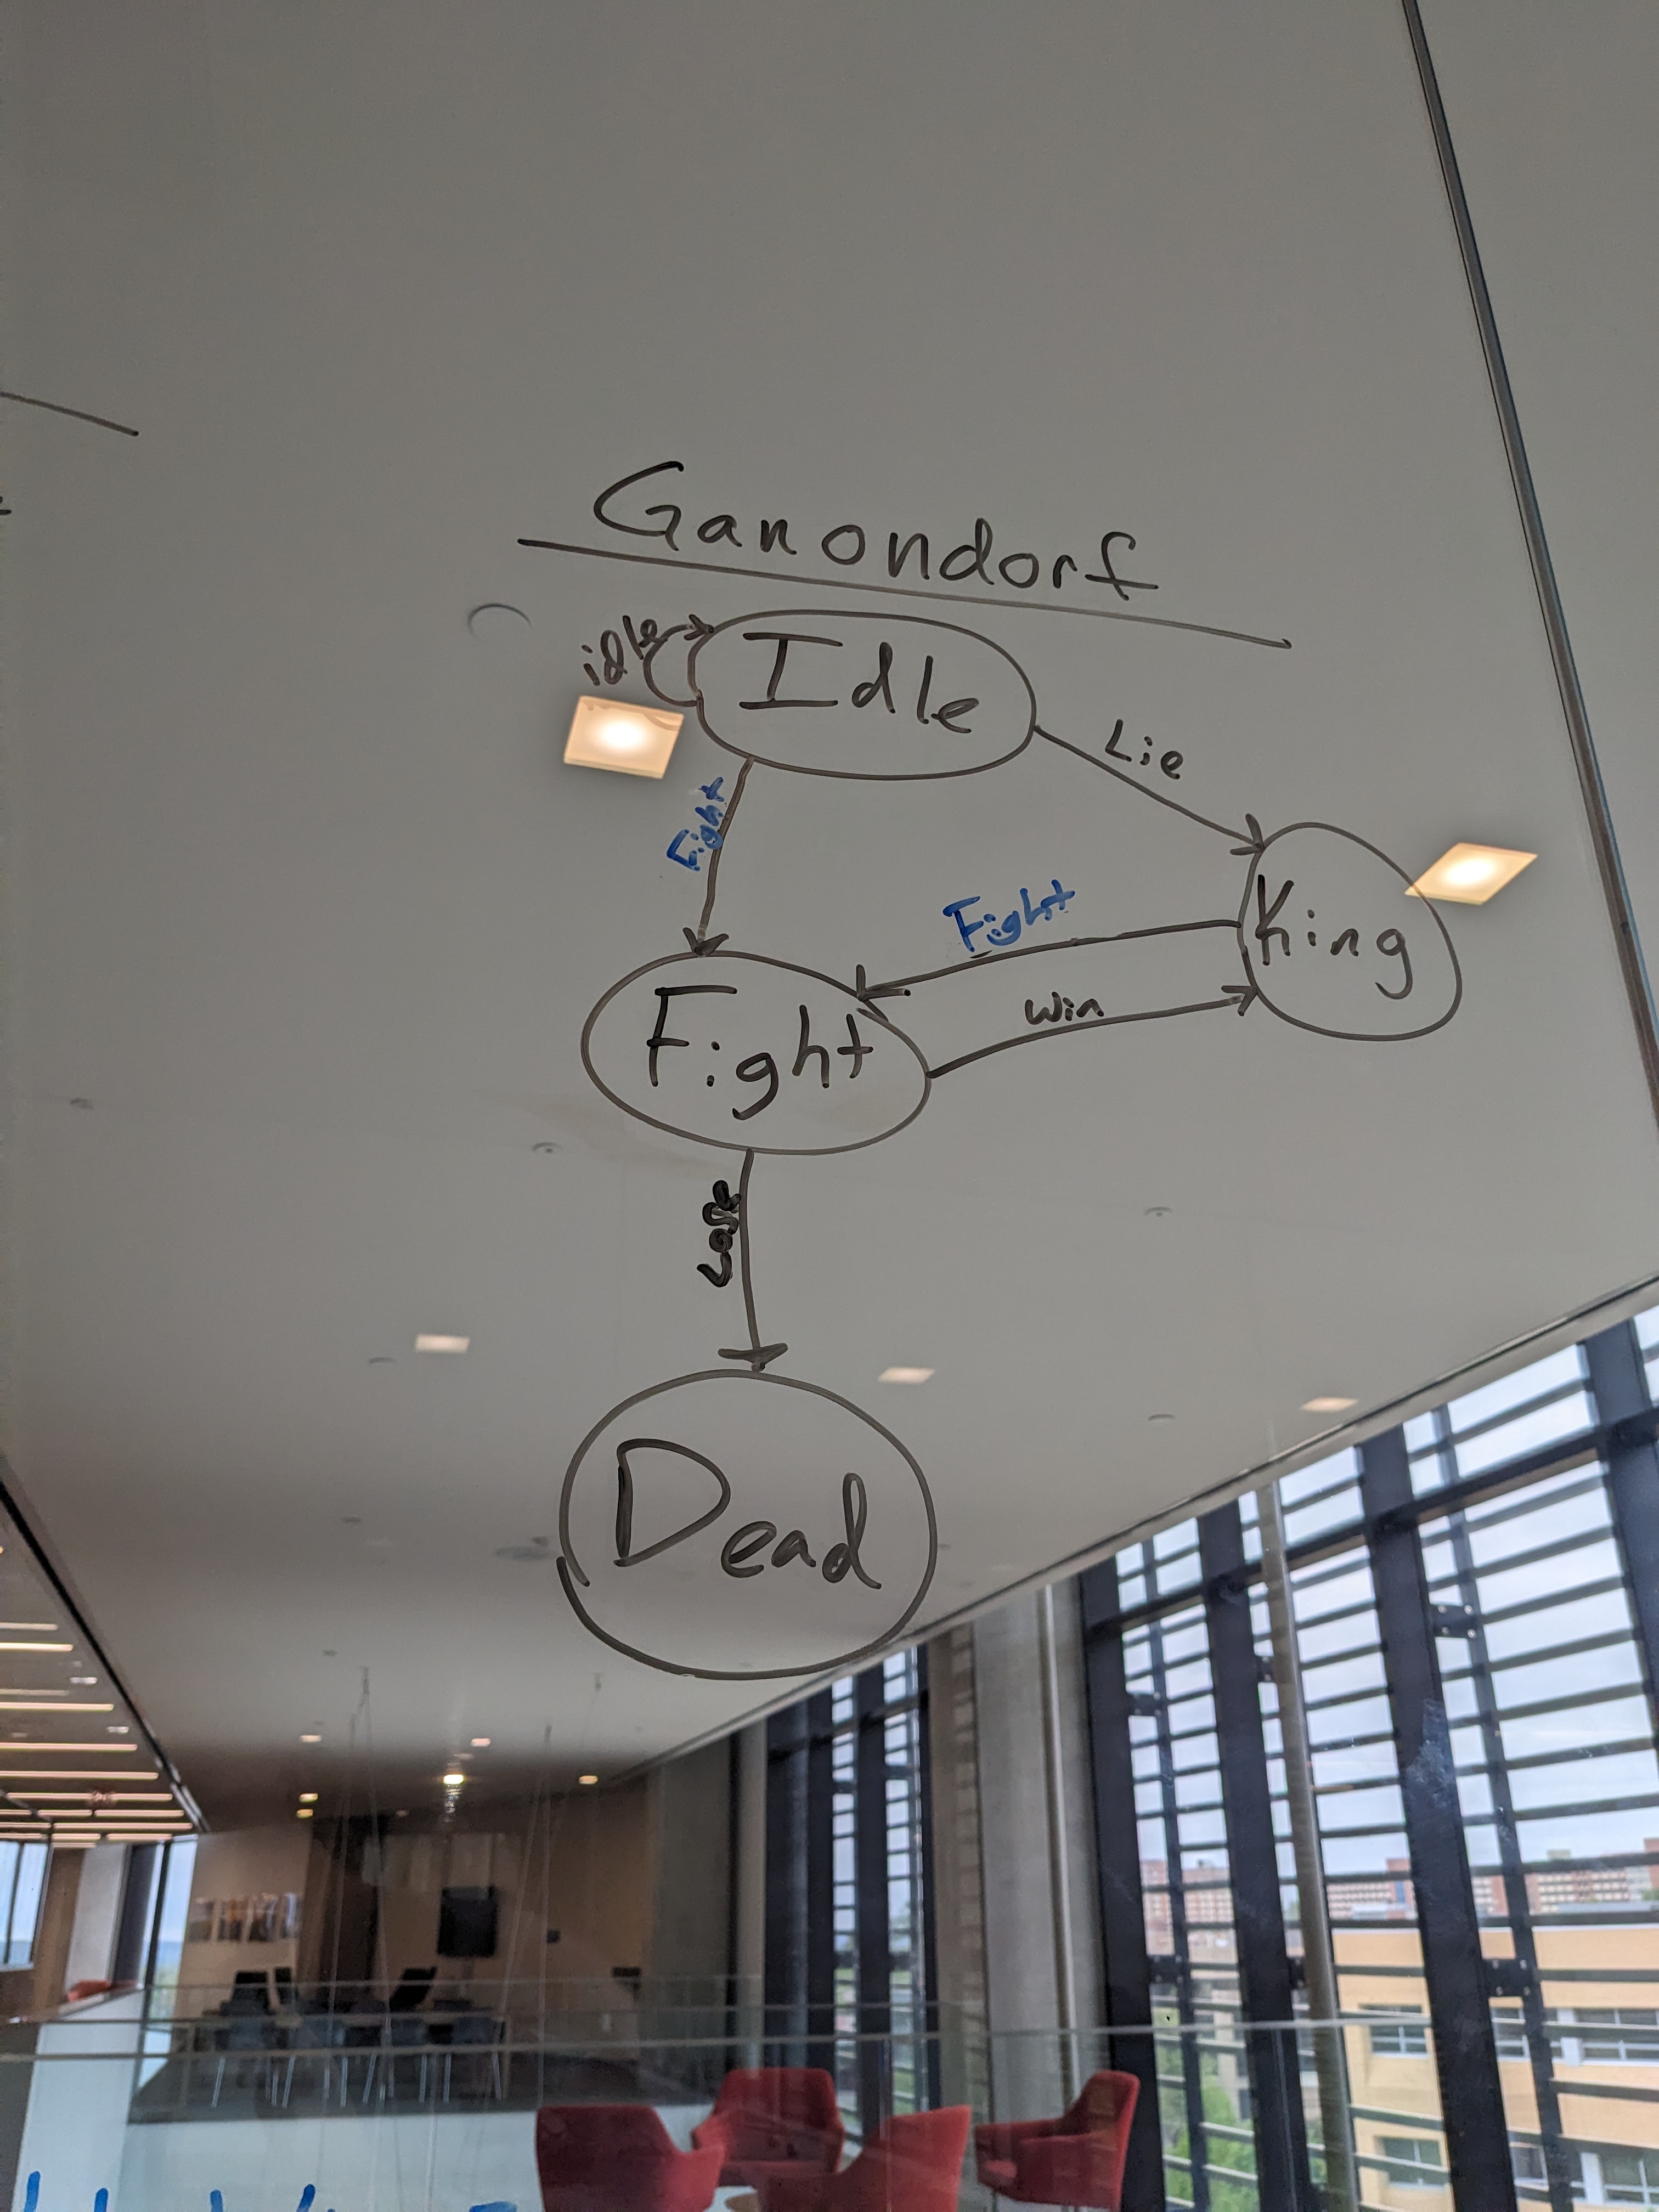 Ganondorf
idle
Idle
Lie
Fight
King
Fight
Win
Fight
Lose
Dead